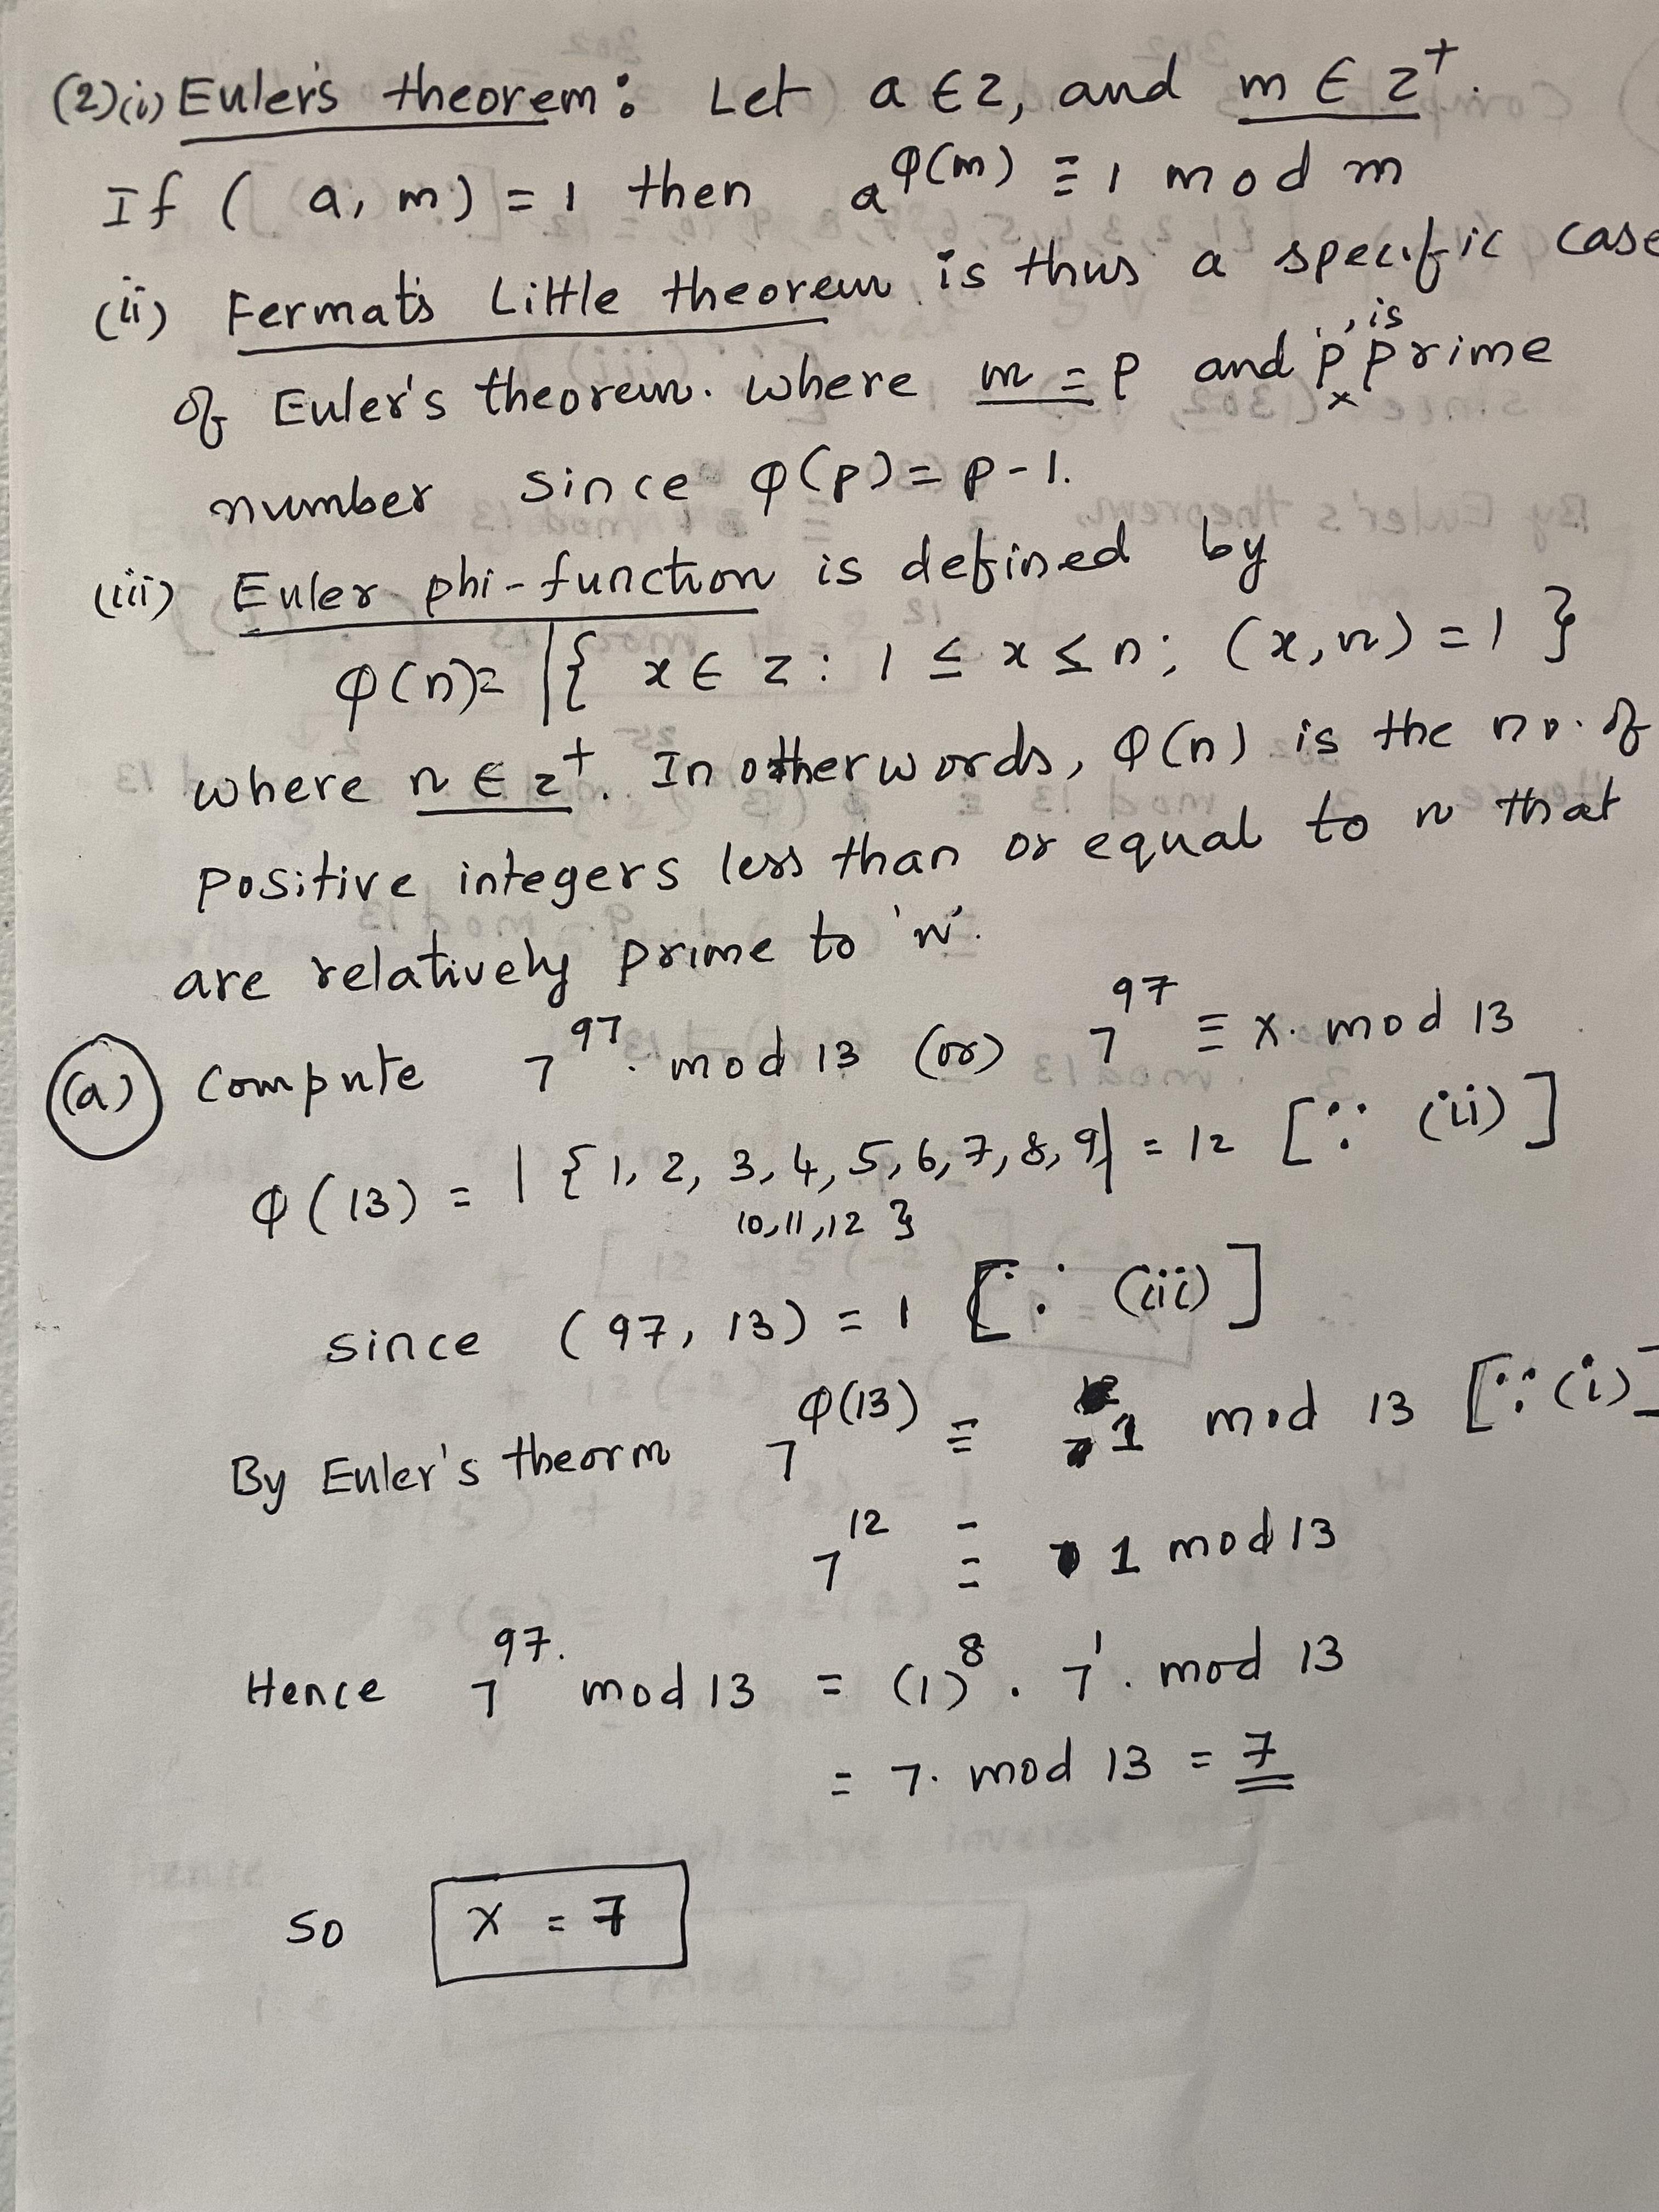 (2)(i) Euler's theorem: Let a ∈ Z, and m ∈ Z⁺.
If (a, m) = 1 then a^φ(m) ≡ 1 mod m
(ii) Fermat's Little theorem is thus a specific case
of Euler's theorem. where m = p and 'p' is prime
number since φ(p) = p-1.
(iii) Euler phi-function is defined by
φ(n) = |{ x ∈ Z : 1 ≤ x ≤ n; (x, n) = 1 }
where n ∈ Z⁺. In other words, φ(n) is the no. of
positive integers less than or equal to n that
are relatively prime to 'n'.
(a) Compute 7^97 . mod 13 (or) 7^97 ≡ x. mod 13
φ(13) = |{1, 2, 3, 4, 5, 6, 7, 8, 9| = 12 [∵ (ii)]
10, 11, 12 }
since (97, 13) = 1 [∵ (iii)]
By Euler's theorm 7^φ(13) ≡ 1 mod 13 [∵ (i)]
7^12 ≡ 1 mod 13
Hence 7^97. mod 13 = (1)^8 . 7^1 . mod 13
= 7. mod 13 = 7
So x = 7